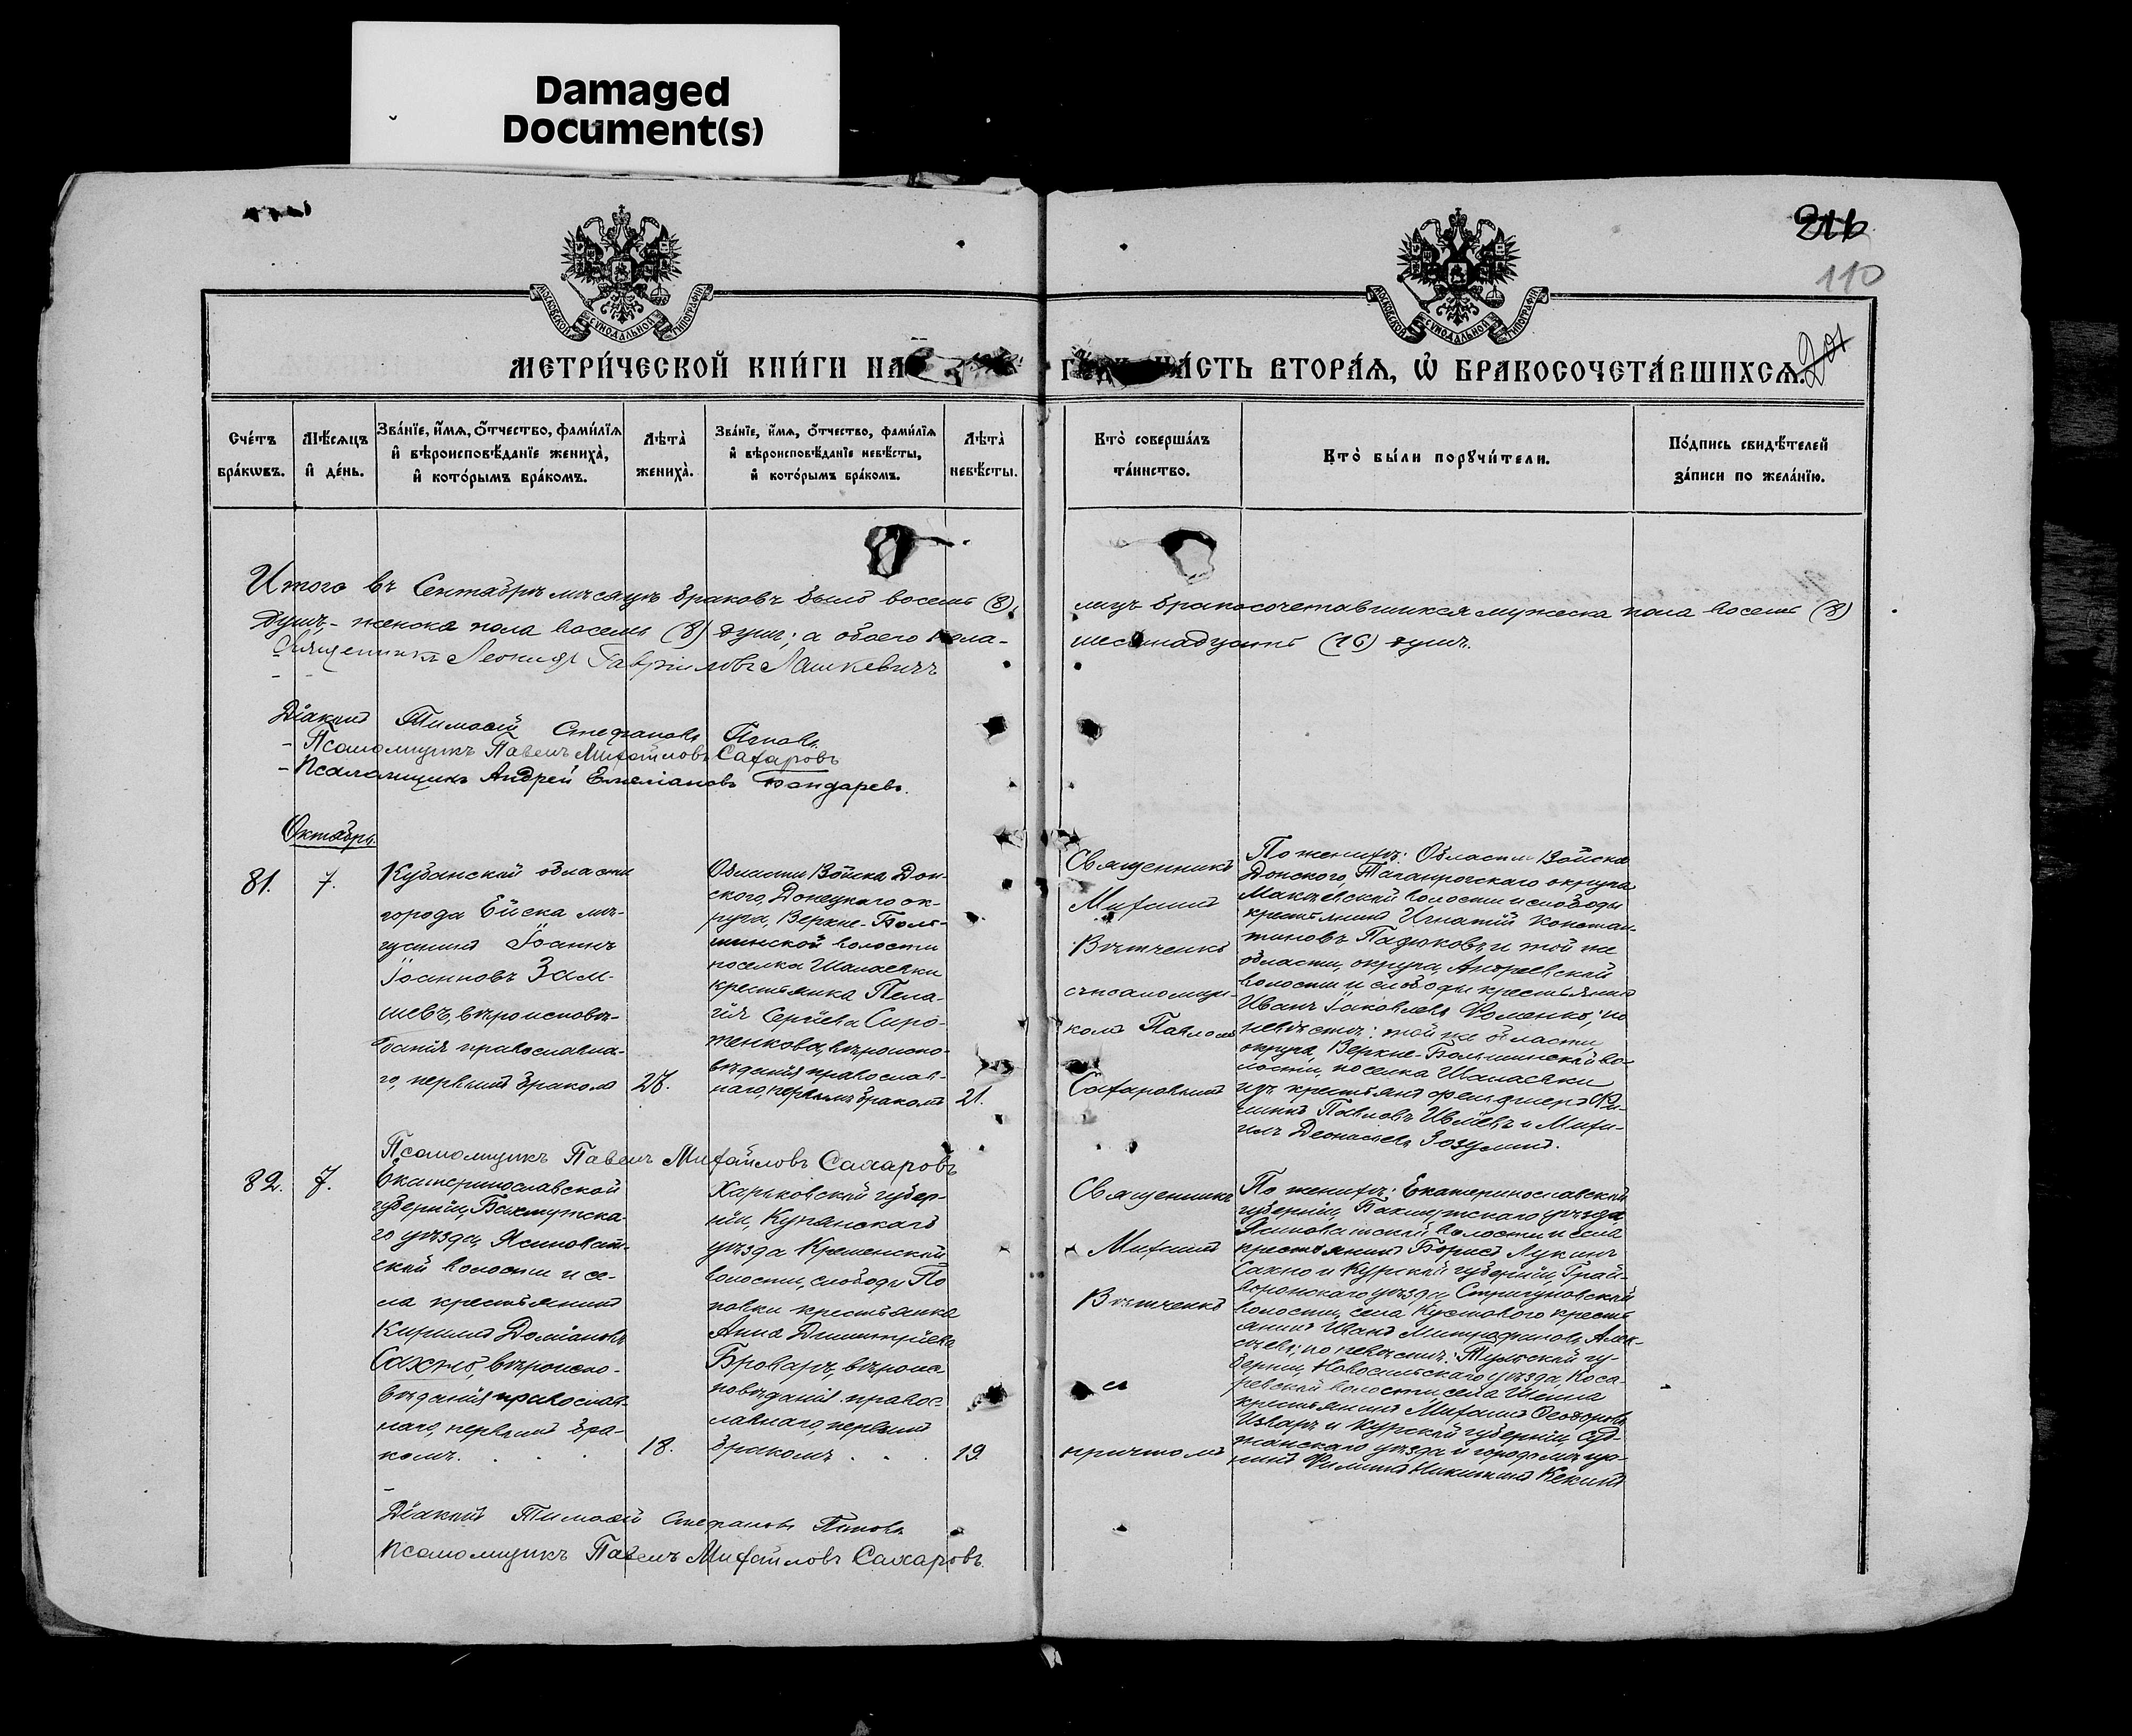 Damaged
Document(s)
110
МОСКОВСКОЙ СѴНОДАЛЬНОЙ ТИПОГРАФІИ
МОСКОВСКОЙ СѴНОДАЛЬНОЙ ТИПОГРАФІИ
МЕТРИ́ЧЕСКОЙ КНИ́ГИ НА
ЧА́СТЬ ВТОРА́Ѧ, Ѿ БРАКОСОЧЕТА́ВШИХСѦ.
201
Сче́тъ бра́кѡвъ.
Мѣ́сѧцъ и҆ де́нь.
Зва́нїе, и҆́мѧ, ѻ҆́тчество, фами́лїѧ и҆ вѣроисповѣ́данїе жениха̀, и҆ кото́рымъ бра́комъ.
Лѣта̀ жениха̀.
Зва́нїе, и҆́мѧ, ѻ҆́тчество, фами́лїѧ и҆ вѣроисповѣ́данїе невѣ́сты, и҆ кото́рымъ бра́комъ.
Лѣта̀ невѣ́сты.
Кто̀ соверша́лъ та́инство.
Кто̀ бы́ли порꙋчи́тели.
По́дпись свидѣ́телей за́писи по жела́нїю.
Итого въ Сентябрѣ мѣсяцѣ браковъ было восемь (8),
лицъ бракосочетавшихся мужеска пола восемь (8)
душъ,- женска пола восемь (8) душъ; а обоего пола-
шестнадцать (16) душъ.
Священникъ Леонидъ Гавриловъ Лашкевичъ
Діаконъ Тимоѳей Стефановъ
Псаломщикъ Павелъ Михайловъ Сахаровъ
Псаломщикъ Андрей Емеліановъ Бондаревъ.
Октябрь.
81.
7.
Кубанской области
города Ейска мѣ-
щанинъ Іоаннъ
Іоанновъ Зам-
шевъ, вѣроисповѣ-
данія православна-
го, первымъ бракомъ
Области Войска Дон-
ского, Донецкаго ок-
руга, Верхне-Боль-
шинской волости
поселка Шалаевки
крестьянка Пела-
гія Сергіева Сиро-
женкова, вѣроиспо-
вѣданія православ-
наго, первымъ бракомъ
21.
Священникъ
Михаилъ
Вѣтченко
съ псаломщи-
комъ Павломъ
Сахаровымъ
По женихѣ: Области Войска
Донского, Таганрогскаго округа,
Макѣевской волости и слободы
крестьянинъ Игнатій Констан-
тиновъ Падюковъ, и той же
области, округа, Андреевской
волости и слободы крестьянинъ
Иванъ Іаковлевъ Фоменко; по
невѣстѣ: той же области,
округа, Верхне-Большинской во-
лости, поселка Шалаевки
изъ крестьянъ фельдшеръ Фи-
липпъ Павловъ Ивлевъ и Миха-
илъ Зозулинъ.
Псаломщикъ Павелъ Михайловъ Сахаровъ
82.
7.
Екатеринославской
губерніи, Бахмутска-
го уѣзда, Ясиноват-
ской волости и се-
ла крестьянинъ
Кириллъ Доміановъ
Сахно, вѣроиспо-
вѣданія православ-
наго, первымъ бра-
комъ. . . .
18.
Харьковской губер-
ніи, Купянскаго
уѣзда Кременской
волости, слободы По
повки крестьянка
Анна Димитріева
Броваръ, вѣроис
повѣданія правос-
лавнаго, первымъ
бракомъ . . .
19.
Священникъ
Михаилъ
Вѣтченко
съ
причтомъ
По женихѣ: Екатеринославской
губерніи, Бахмутскаго уѣзда,
Ясиноватской волости и села
крестьянинъ Борисъ Лукинъ
Сахно и Курской губерніи, Грай-
воронскаго уѣзда, Стригуновской
волости, села Кустового кресть
янинъ Иванъ Митрофановъ Алек-
сѣевъ; по невѣстѣ: Тульской гу-
берніи, Новосильскаго уѣзда, Коса-
ревской волости, села
крестьянинъ Михаилъ Ѳеодоровъ
и Курской губерніи, Суд-
жанскаго уѣзда и города мѣща-
нинъ Филиппъ Никитинъ
Діаконъ Тимоѳей Стефановъ
Псаломщикъ Павелъ Михайловъ Сахаровъ.